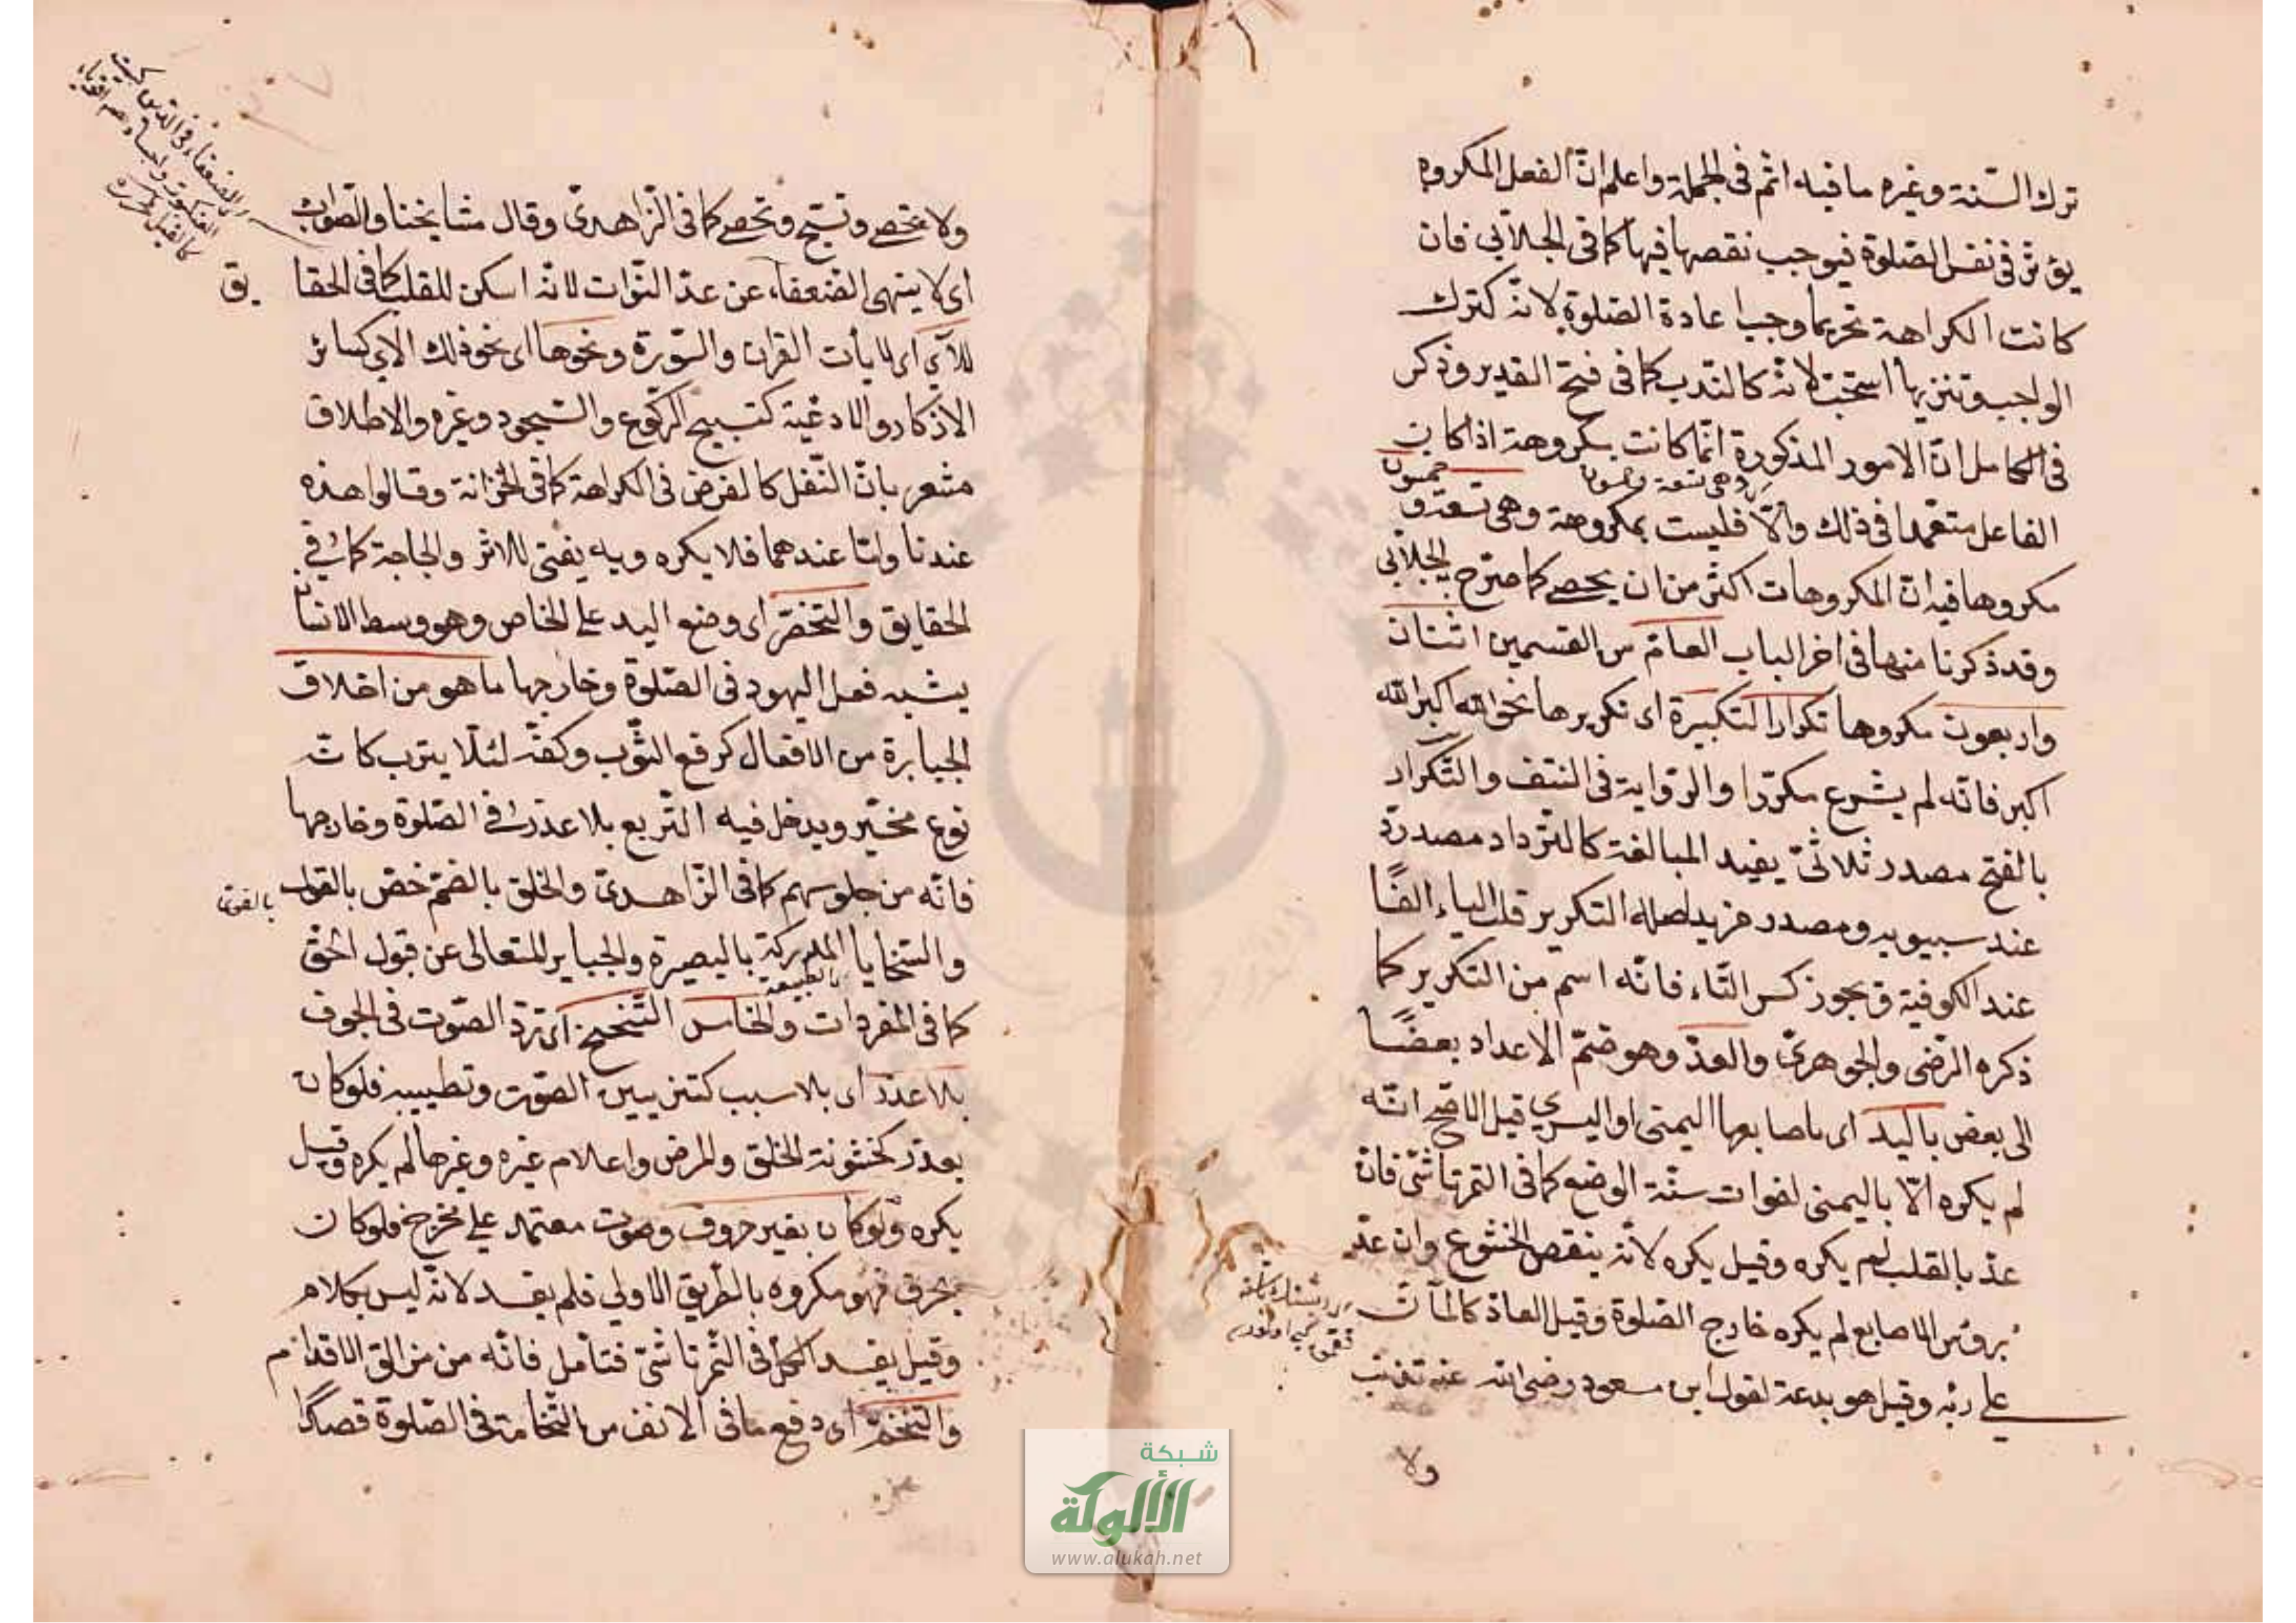 ترك السّنة وغيره ما فيه اثم فى الجملة واعلم انّ الفعل المكروه
يؤثر فى نفس الصّلوة فيوجب نقصها فيها كما فى الجلّابى فان
كانت الكراهة تحريما وجب اعادة الصّلوة لانّه كترك
الواجب وتنزيها استحبّ لانّه كالندب كما فى فتح القدير وذكر
فى الكامل انّ الامور المذكورة انّما كانت بكروهة اذا كان
الفاعل متعمّدا فى ذلك والّا فليست بمكروهة وهى تسعة و
خمسون
وهى تسعة وخمسون
مكروها فيه انّ المكروهات اكثر من ان يحصى كما صرّح الجلّابى
وقد ذكرنا منها فى اخر الباب العامّ من القسمين اثنان
واربعون مكروها تكرار التكبيرة اى تكريرها نحو الله اكبر الله
اكبر فانّه لم يشرع مكرّرا والرّواية فى النتف والتّكرار
بالفتح مصدر ثلاثىّ يفيد المبالغة كالترداد مصدر ردّ
عند سيبويه ومصدر مزيد اصله التكرير قلب الياء الفًا
عند الكوفية ويجوز كسر التّاء فانّه اسم من التكرير كما
ذكره الرّضى والجوهرىّ والعدّ وهو ضمّ الاعداد بعضًا
الى بعض باليد اى باصابعها اليمنى او اليسرى قيل الاصحّ انّه
لم يكره الّا باليمنى لفوات سنّة الوضع كما فى التمرتاشىّ فان
عدّ بالقلب لم يكره وقيل يكره لانّه ينقص الخشوع وان عدّ
برؤس الاصابع لم يكره خارج الصّلوة وقيل العادّ كالمانّ
على ربّه وقيل هو بدعة لقول ابن مسعود رضى الله عنه تذنب
ولا
ولا تحصى وتسبّح وتحصى كما فى الزّاهدىّ وقال مشايخنا والصّواب
اى لا ينهى الضّعفاء عن عدّ النّوات لانّه اسكن للقلب كما فى الحقا
يق
للآى اى لايات القران والسّورة ونحوها اى نحو ذلك الاى كسائر
الاذكار والادعية كتسبيح الرّكوع والسّجود وغيره والاطلاق
مشعر بانّ النّفل كالفرض فى الكراهة كما فى الخزانة وقالوا هذه
عندنا وامّا عندهما فلا يكره وبه يفتى للاثر والحاجة كما فى
الحقايق والتّخصّر اى وضع اليد على الخاصر وهو وسط الانسان
يشبه فعل اليهود فى الصّلوة وخارجها ما هو من اخلاق
الجبابرة من الافعال كرفع الثّوب وكفّه لئلّا يترب كانّه
نوع تجبّر ويدخل فيه التّربع بلا عذر فى الصّلوة وخارجها
فانّه من جلوسهم كما فى الزّاهدىّ والخلق بالضّمّ خصّ بالقوى
بالقوى
والسّجايا المدركة بالبصيرة والجبابر المتعالى عن قبول الحقّ
كما فى المفردات والخامس التّنحنح اى تردّد الصّوت فى الجوف
بلا عذر اى بلا سبب كتزيين الصّوت وتطييبه فلو كان
بعذر كخشونة الحلق والمرض واعلام غيره وغيرها لم يكره وقيل
يكره ولو كان بغير حروف وصوت معتمد على مخرج فلو كان
بحرف فهو مكروه بالطّريق الاولى فلم يفسد لانّه ليس بكلام
وقيل يفسد الكلّ فى التّمرتاشىّ فتأمّل فانّه من مزالق الاقدام
والتّنخّم اى دفع ما فى الانف من النّخامة فى الصّلوة قصدًا
شبكة
الألوكة
www.alukah.net